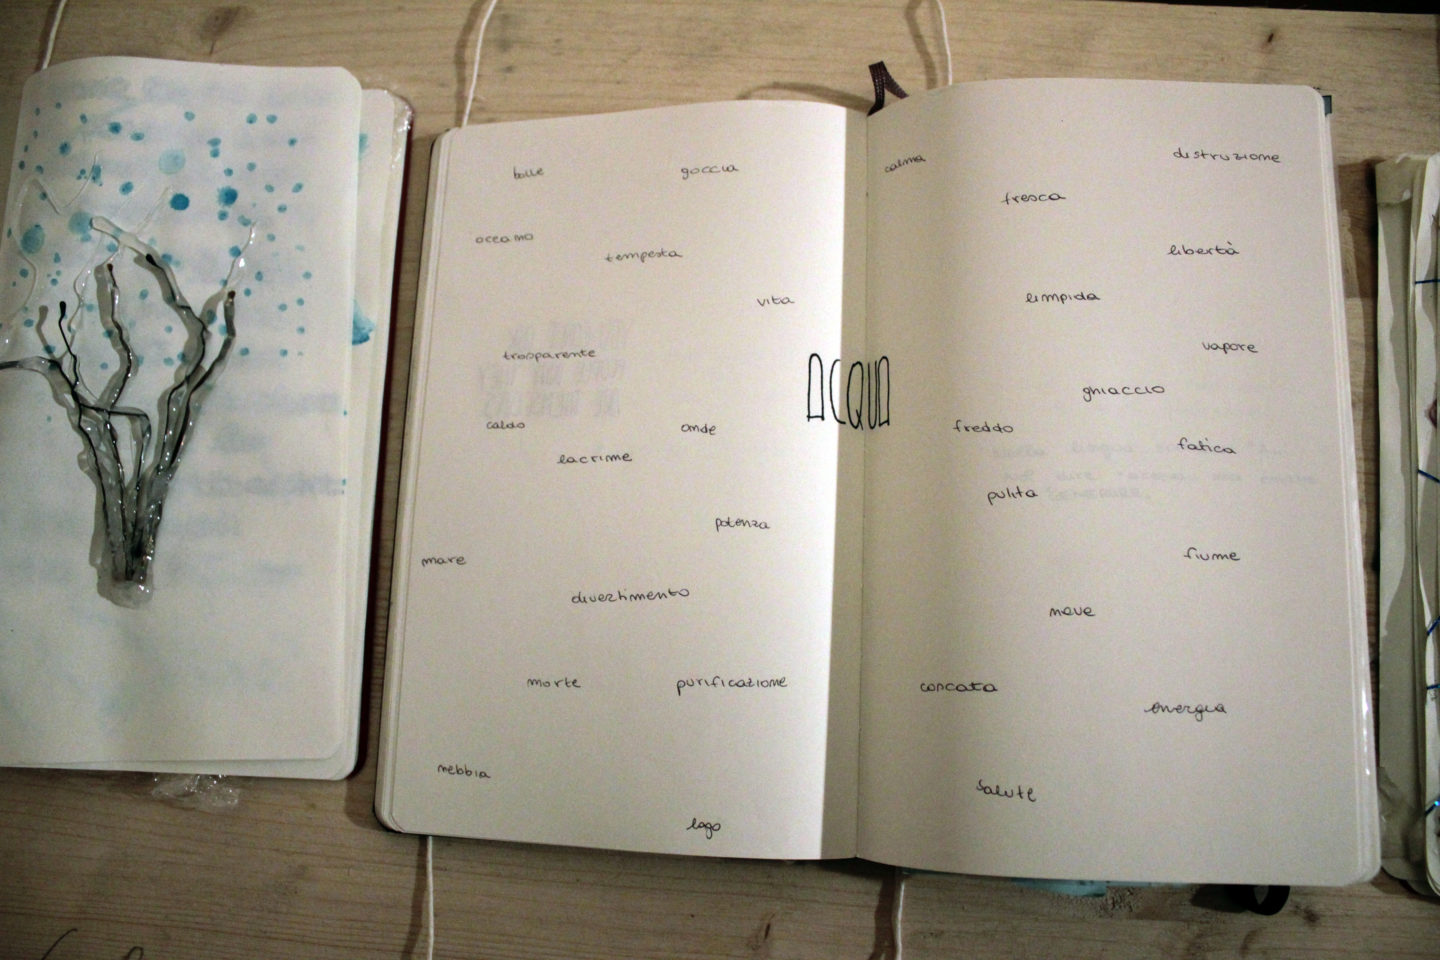 bolle
goccia
oceano
tempesta
vita
trasparente
caldo
onde
lacrime
potenza
mare
divertimento
morte
purificazione
nebbia
lago
ACQUA
calma
distruzione
fresca
libertà
limpida
vapore
ghiaccio
freddo
fatica
pulita
fiume
neve
cascata
energia
salute